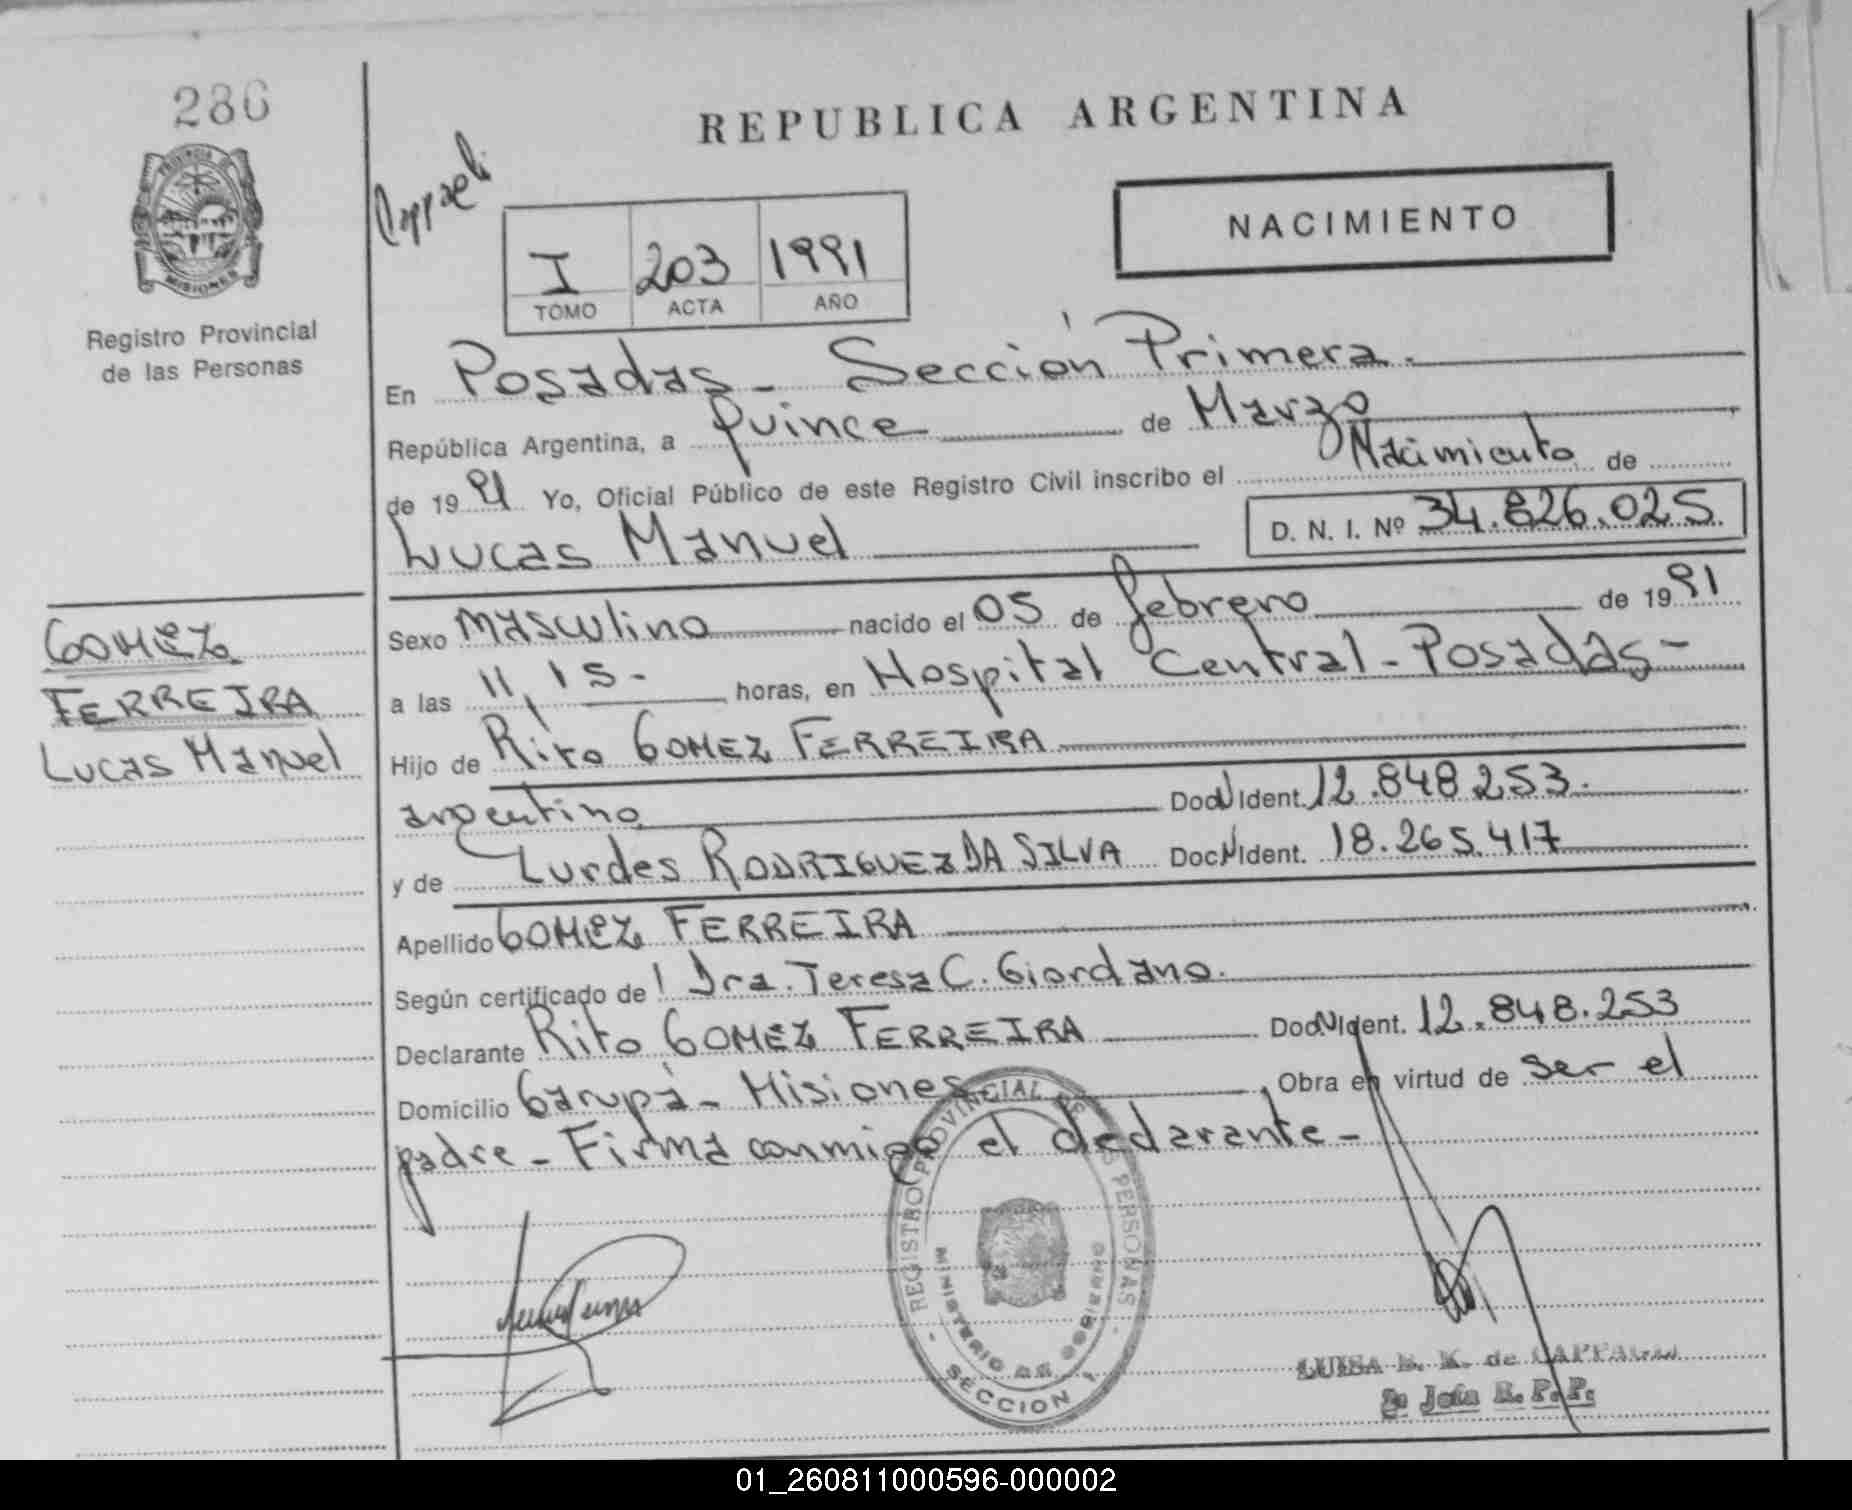 286
PROVINCIA DE
MISIONES
Registro Provincial
de las Personas
REPUBLICA ARGENTINA
NACIMIENTO
I 203 1991
TOMO ACTA AÑO
En Posadas - Sección Primera.
República Argentina, a Quince de Marzo
de 19 91 Yo, Oficial Público de este Registro Civil inscribo el Nacimiento de
Lucas Manuel D. N. I. Nº 34.826.025
GOMEZ
FERREIRA
Lucas Manuel
Sexo masculino nacido el 05 de febrero de 19 91
a las 11,15- horas, en Hospital Central - Posadas -
Hijo de Rito GOMEZ FERREIRA
argentino Doc N Ident. 12.848.253.
y de Lurdes RODRIGUEZ DA SILVA Doc N Ident. 18.265.417
Apellido GOMEZ FERREIRA
Según certificado de Dra. Teresa C. Giordano.
Declarante Rito GOMEZ FERREIRA Doc N Ident. 12.848.253
Domicilio Garupá - Misiones, Obra en virtud de ser el
padre - Firma conmigo el declarante -
REGISTRO PROVINCIAL DE LAS PERSONAS
MINISTERIO DE GOBIERNO
SECCION 1
LUISA E. K. de
2ª Jefa R. P. P.
01_260811000596-000002